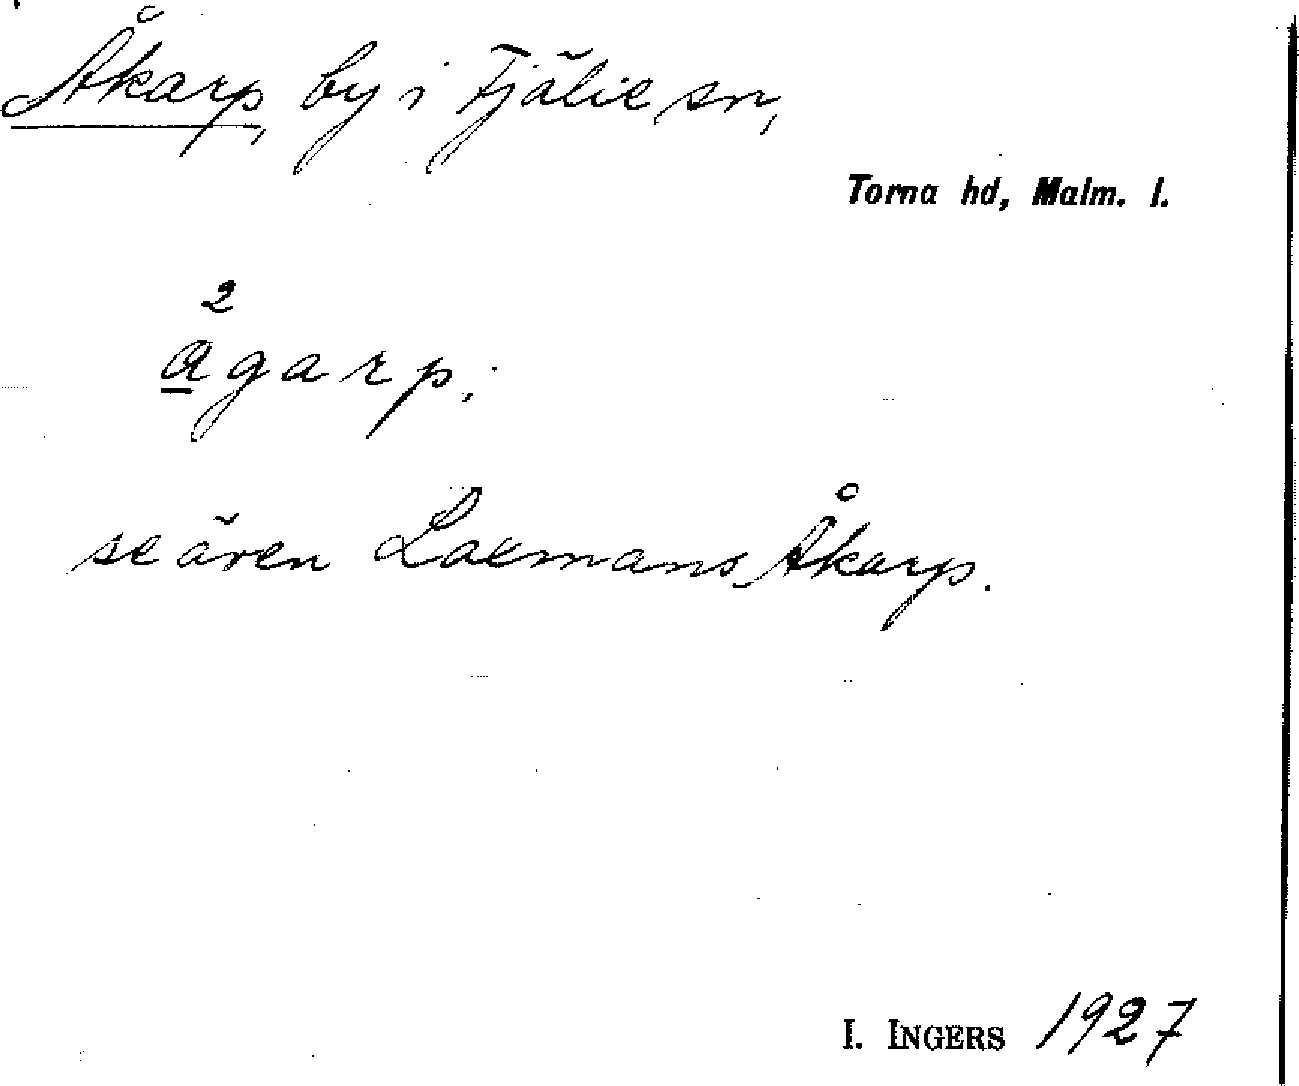 Åkarp, by i Fjälie sn,
Torna hd, Malm. l.
2
agarp;
se även Laxmans Åkarp.
I. INGERS 1927